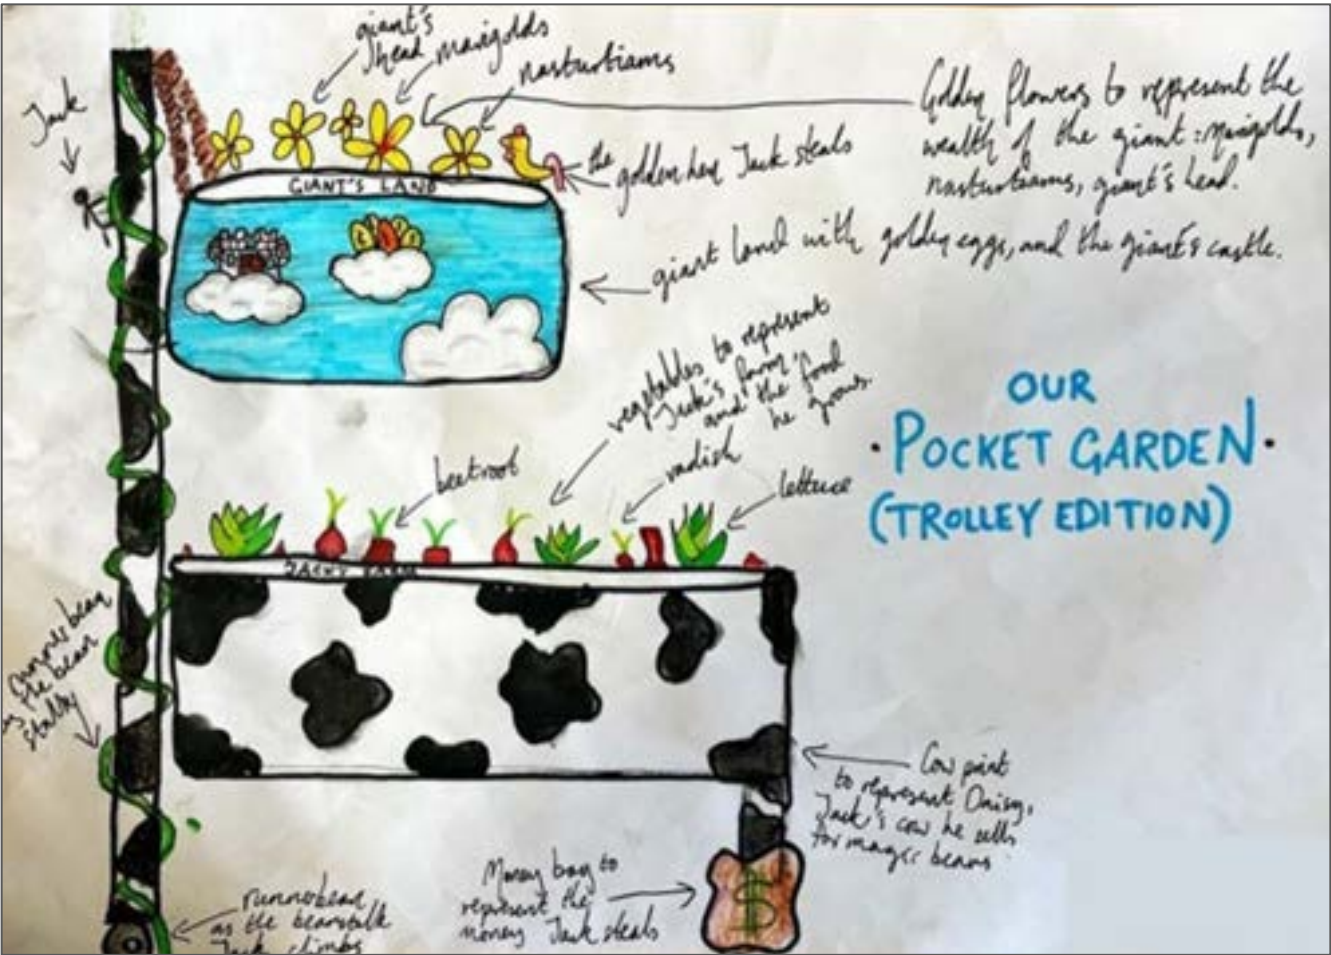 giant's
head
marigolds
nasturtiams
Jack
Golden flowers to represent the
wealth of the giant: marigolds,
nasturtiams, giant's head.
the
golden hen Jack steals
GIANT'S LAND
giant land with golden eggs, and the giant's castle.
vegetables to represent
Jack's farm,
and the food
he grows.
OUR
· POCKET GARDEN ·
(TROLLEY EDITION)
beetroot
radish
lettuce
JACK'S FARM
as the bean
stalk
Cow print
to represent Daisy,
Jack's cow he sells
for magic beans
Money bag to
represent the
money Jack steals
$
as the beanstalk
Jack climbs